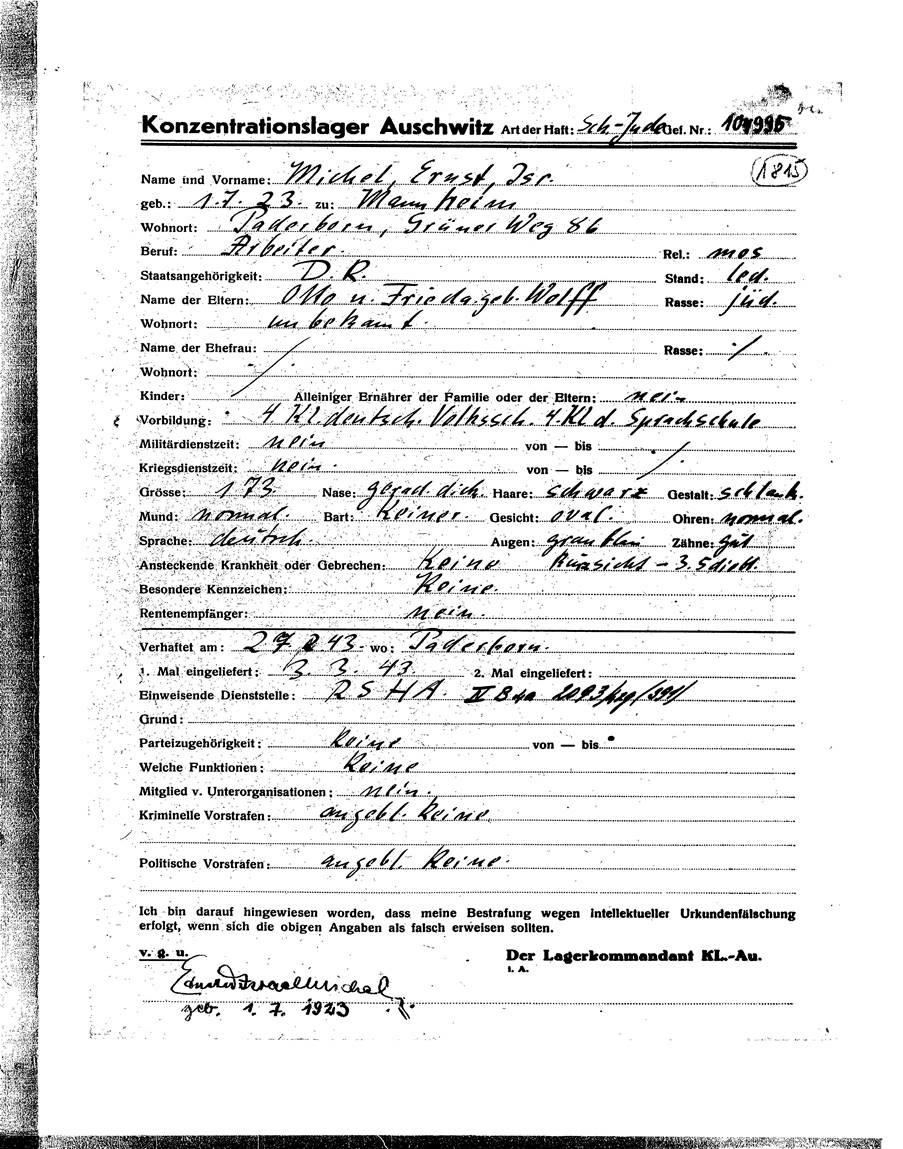 Konzentrationslager Auschwitz Art der Haft: Sch-Jude Gef. Nr.: 104995
1815
Name und Vorname: Michel, Ernst, Isr.
geb.: 1.7.23. zu: Mannheim
Wohnort: Paderborn, Grüner Weg 86
Beruf: Arbeiter. Rel.: mos
Staatsangehörigkeit: D.R. Stand: led.
Name der Eltern: Otto u. Frieda geb. Wolff Rasse: jüd.
Wohnort: unbekannt.
Name der Ehefrau: / Rasse: ./.
Wohnort: /
Kinder: Alleiniger Ernährer der Familie oder der Eltern: nein
Vorbildung: 4 Kl. deutsch. Volkssch. 4. Kl d. Sprachschule
Militärdienstzeit: nein von — bis
Kriegsdienstzeit: nein. von — bis ./.
Grösse: 173. Nase: gerad. dick. Haare: schwarz Gestalt: schlank.
Mund: normal. Bart: Keiner. Gesicht: oval. Ohren: normal.
Sprache: deutsch. Augen: graublau Zähne: gut
Ansteckende Krankheit oder Gebrechen: Keine
Besondere Kennzeichen: Keine.
Rentenempfänger: nein.
Verhaftet am: 27 2 43. wo: Paderborn.
1. Mal eingeliefert: 3. 3. 43 2. Mal eingeliefert:
Einweisende Dienststelle: RSHA. 2093/
Grund:
Parteizugehörigkeit: Keine von — bis
Welche Funktionen: Keine
Mitglied v. Unterorganisationen: nein.
Kriminelle Vorstrafen: angebl. Keine
Politische Vorstrafen: angebl. Keine.
Ich bin darauf hingewiesen worden, dass meine Bestrafung wegen intellektueller Urkundenfälschung
erfolgt, wenn sich die obigen Angaben als falsch erweisen sollten.
v. g. u. Der Lagerkommandant KL.-Au.
i. A.
Ernst Israel Michel
geb. 1. 7. 1923